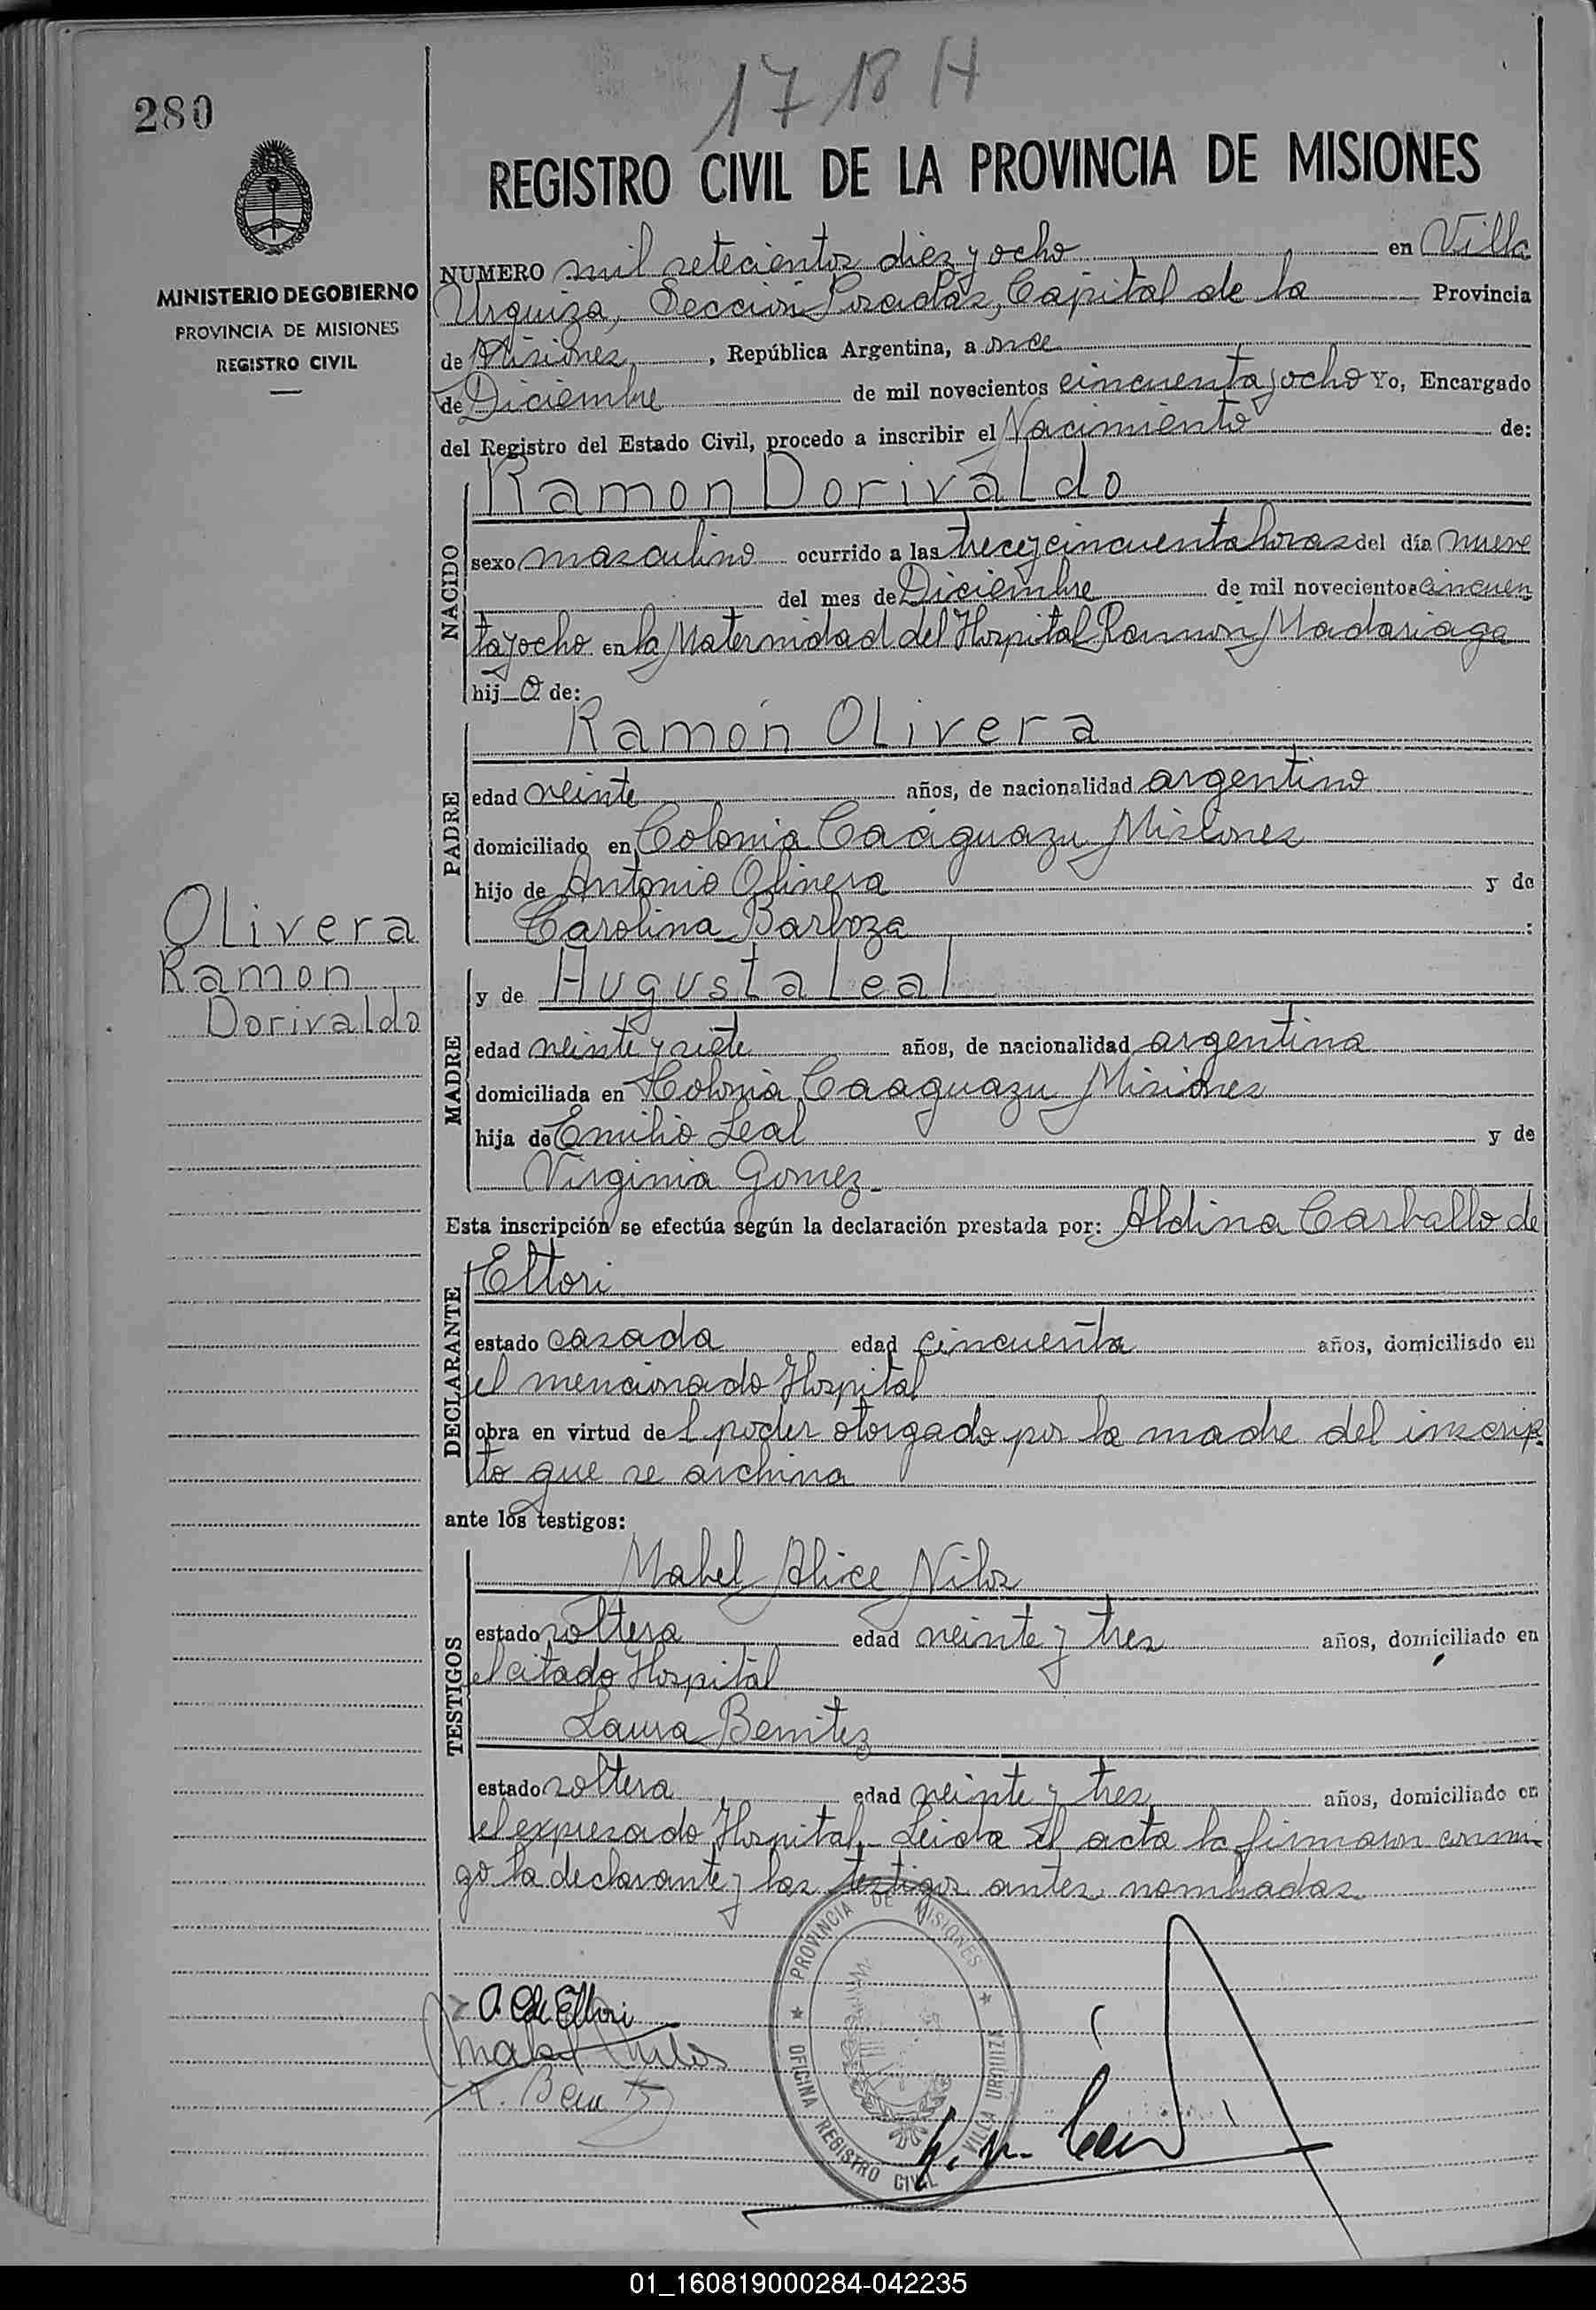 280
17 18 H
REGISTRO CIVIL DE LA PROVINCIA DE MISIONES
MINISTERIO DE GOBIERNO
PROVINCIA DE MISIONES
REGISTRO CIVIL
NUMERO mil setecientos diez y ocho en Villa
Urquiza, Sección Posadas, Capital de la Provincia
de Misiones, República Argentina, a once
de Diciembre de mil novecientos cincuenta y ocho Yo, Encargado
del Registro del Estado Civil, procedo a inscribir el Nacimiento de:
NACIDO
Ramon Dorivaldo
sexo masculino ocurrido a las trece y cincuenta horas del día nueve
del mes de Diciembre de mil novecientos cincuen
ta y ocho en la Maternidad del Hospital Ramón Madariaga
hijo de:
PADRE
Ramón Olivera
edad veinte años, de nacionalidad argentino
domiciliado en Colonia Caaguazu Misiones
hijo de Antonio Olivera y de
Carolina Barboza :
Olivera
Ramon
Dorivaldo
MADRE
y de Augusta Leal
edad veinte y siete años, de nacionalidad argentina
domiciliada en Colonia Caaguazu Misiones
hija de Emilio Leal y de
Virginia Gomez-
Esta inscripción se efectúa según la declaración prestada por: Aldina Carballo de
DECLARANTE
Eltori
estado casada edad cincuenta años, domiciliado en
el mencionado Hospital
obra en virtud del poder otorgado por la madre del inscrip
to que se archiva
ante los testigos:
TESTIGOS
Mabel Alice Nilos
estado soltera edad veinte y tres años, domiciliado en
el citado Hospital
Laura Benitez
estado soltera edad veinte y tres años, domiciliado en
el expresado Hospital.- Leida el acta la firmaron conmi-
go la declarante y las testigos antes nombradas
PROVINCIA DE MISIONES
OFICINA REGISTRO CIVIL VILLA URQUIZA
A. C. de Eltori
Mabel Nilos
L. Benitez
01_160819000284-042235